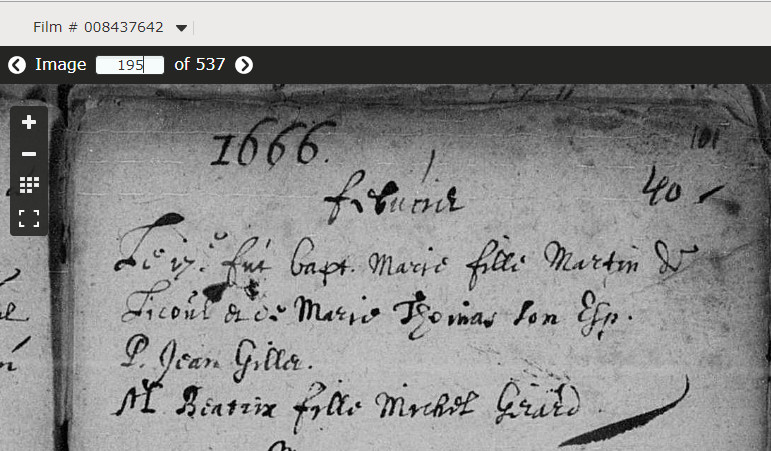 Film # 008437642
Image 195 of 537
101
1666.
40
febvrier
Le 17e fut bapt. Marie fille Martin de
Ficoul et de Marie Thomas son Esp.
P. Jean Gilles.
M Beatrix fille Michel Gerard